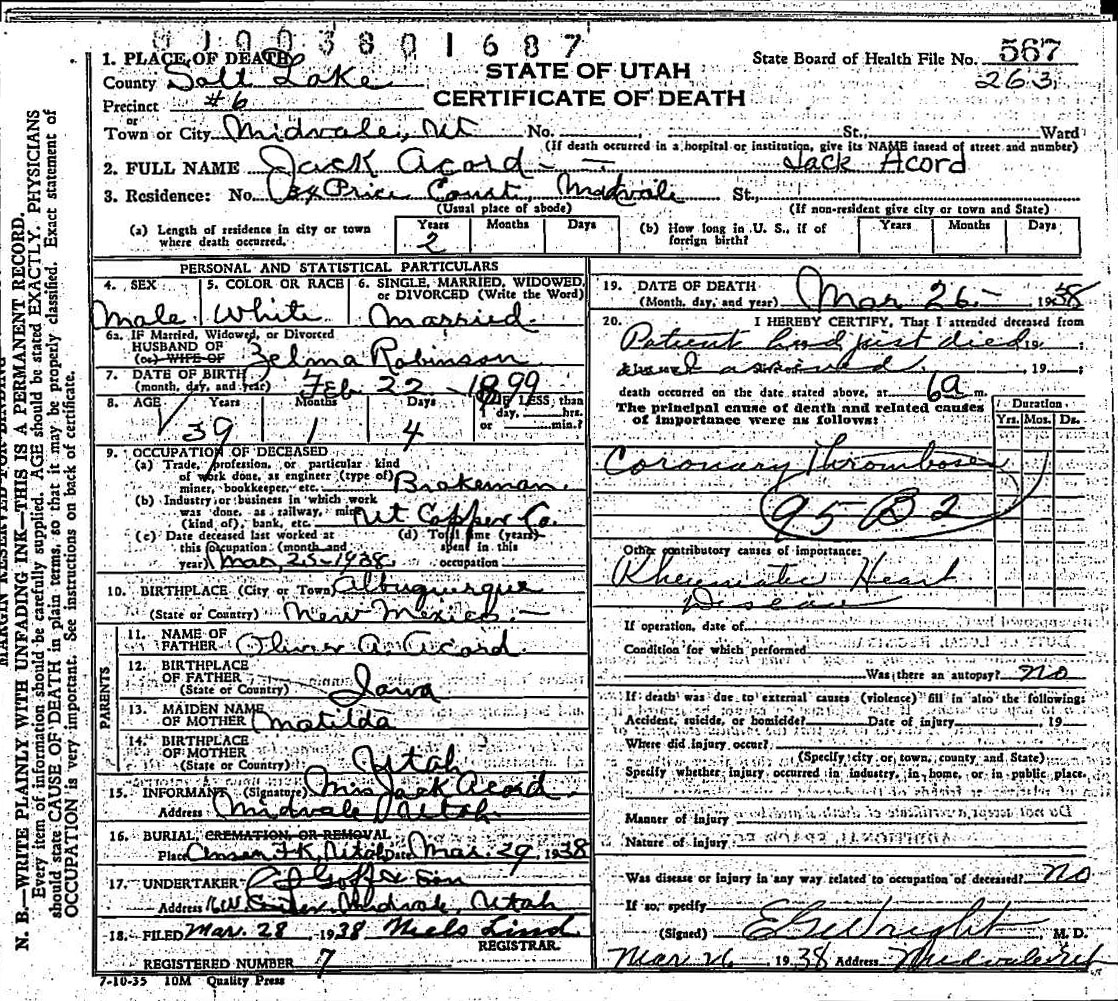 01003801687
1. PLACE OF DEATH
County Salt Lake
Precinct #6
or
Town or City Midvale, Ut No. St., Ward
(If death occurred in a hospital or institution, give its NAME insead of street and number)
STATE OF UTAH
CERTIFICATE OF DEATH
State Board of Health File No. 567
263
2. FULL NAME Jack Acord Jack Acord
3. Residence: No. Price Court, Midvale St.,
(Usual place of abode) (If non-resident give city or town and State)
(a) Length of residence in city or town where death occurred. Years 2 Months Days
(b) How long in U. S., if of foreign birth? Years Months Days
PERSONAL AND STATISTICAL PARTICULARS
4. SEX Male
5. COLOR OR RACE White
6. SINGLE, MARRIED, WIDOWED, or DIVORCED (Write the Word) Married
6a. If Married, Widowed, or Divorced
HUSBAND OF
(or) WIFE OF Zelma Robinson
7. DATE OF BIRTH
(month, day, and year) Feb 22 - 1899
8. AGE Years 39 Months 1 Days 4 If LESS than
day, hrs.
or min.?
9. OCCUPATION OF DECEASED
(a) Trade, profession, or particular kind
of work done, as engineer (type of)
miner, bookkeeper, etc. Brakeman.
(b) Industry or business in which work
was done, as railway, mine
(kind of), bank, etc. Ut Copper Co.
(c) Date deceased last worked at
this occupation (month and
year) Mar 25-1938
(d) Total time (years)
spent in this
occupation
10. BIRTHPLACE (City or Town) Albuquerque
(State or Country) New Mexico
PARENTS
11. NAME OF
FATHER Oliver A. Acord
12. BIRTHPLACE
OF FATHER
(State or Country) Iowa
13. MAIDEN NAME
OF MOTHER Matilda
14. BIRTHPLACE
OF MOTHER
(State or Country) Utah
15. INFORMANT (Signature) Mrs Jack Acord
Address Midvale Utah.
16. BURIAL CREMATION, OR REMOVAL
Place Utah Date Mar. 29, 1938
17. UNDERTAKER Goff & Son
Address Center, Midvale, Utah
18. FILED Mar. 28, 1938 Niels Lind
REGISTRAR.
REGISTERED NUMBER 7
7-10-35 10M Quality Press
19. DATE OF DEATH
(Month, day, and year) Mar 26 - 1938
20. I HEREBY CERTIFY, That I attended deceased from
Patient had just died, 19 ;
arrived , 19 ;
death occurred on the date stated above, at 6a m.
The principal cause of death and related causes
of importance were as follows:
Duration
Yrs. Mos. Ds.
Coronary Thrombosis
95-B2
Other contributory causes of importance:
Rheumatic Heart
Disease
If operation, date of
Condition for which performed
Was there an autopsy? no
If death was due to external causes (violence) fill in also the following:
Accident, suicide, or homicide? Date of injury , 19
Where did injury occur?
(Specify city or town, county and State)
Specify whether injury occurred in industry, in home, or in public place.
Manner of injury
Nature of injury
Was disease or injury in any way related to occupation of deceased? No
If so, specify
(Signed) E G Wright M. D.
Mar 26 1938 Address Midvale Ut
MARGIN RESERVED FOR BINDING
N. B.—WRITE PLAINLY WITH UNFADING INK—THIS IS A PERMANENT RECORD.
Every item of information should be carefully supplied. AGE should be stated EXACTLY. PHYSICIANS
should state CAUSE OF DEATH in plain terms, so that it may be properly classified. Exact statement of
OCCUPATION is very important. See instructions on back of certificate.